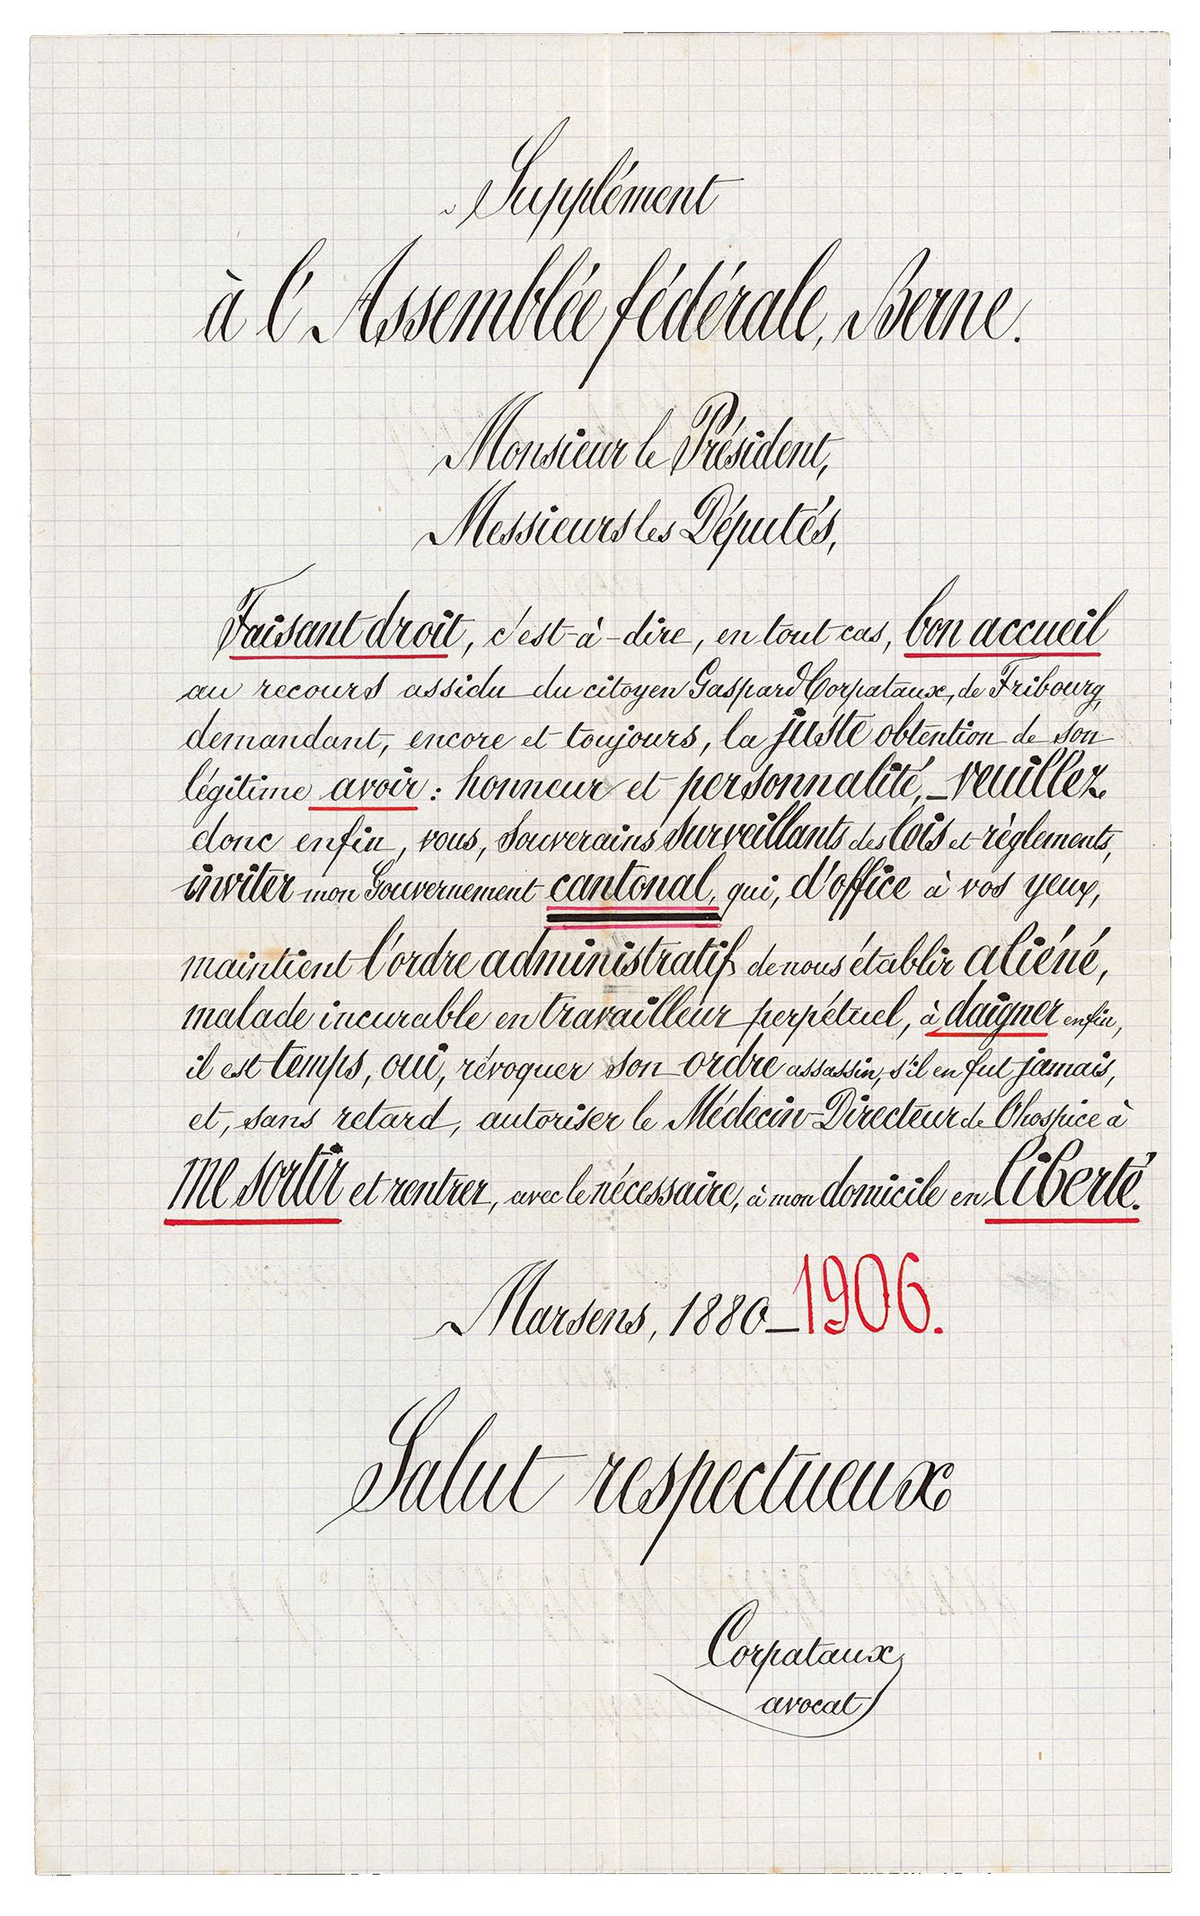 Supplément
à l'Assemblée fédérale, Berne.
Monsieur le Président,
Messieurs les Députés,
Faisant droit, c'est-à-dire, en tout cas, bon accueil
au recours assidu du citoyen Gaspard Corpataux, de Fribourg,
demandant, encore et toujours, la juste obtention de son
légitime avoir : honneur et personnalité, _ veuillez
donc enfin, vous, Souverains Surveillants des lois et règlements,
inviter mon Gouvernement cantonal, qui, d'office à vos yeux,
maintient l'ordre administratif de nous établir aliéné,
malade incurable en travailleur perpétuel, à daigner enfin,
il est temps, oui, révoquer son ordre assassin, s'il en fut jamais,
et, sans retard, autoriser le Médecin-Directeur de l'hospice à
me sortir et rentrer, avec le nécessaire, à mon domicile en liberté.
Marsens, 1880_1906.
Salut respectueux
Corpataux,
avocat